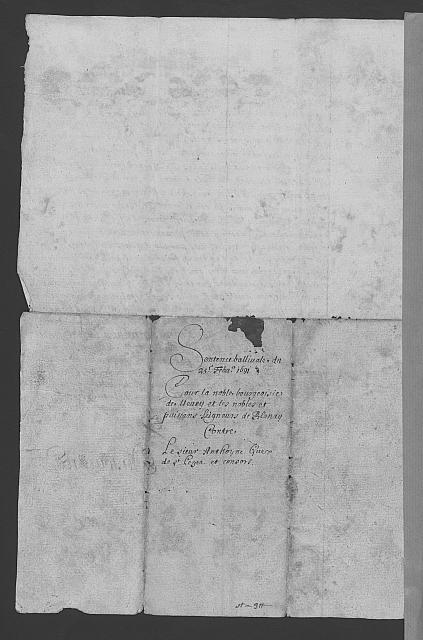 Sentence ballivale du
23e Feba.o 1691
Pour la noble bourgeoisie
de Vevey et les nobles et
puissans Seigneurs de Blonay
Contre
Le sieur Anthoyne
de St Legea et consort.